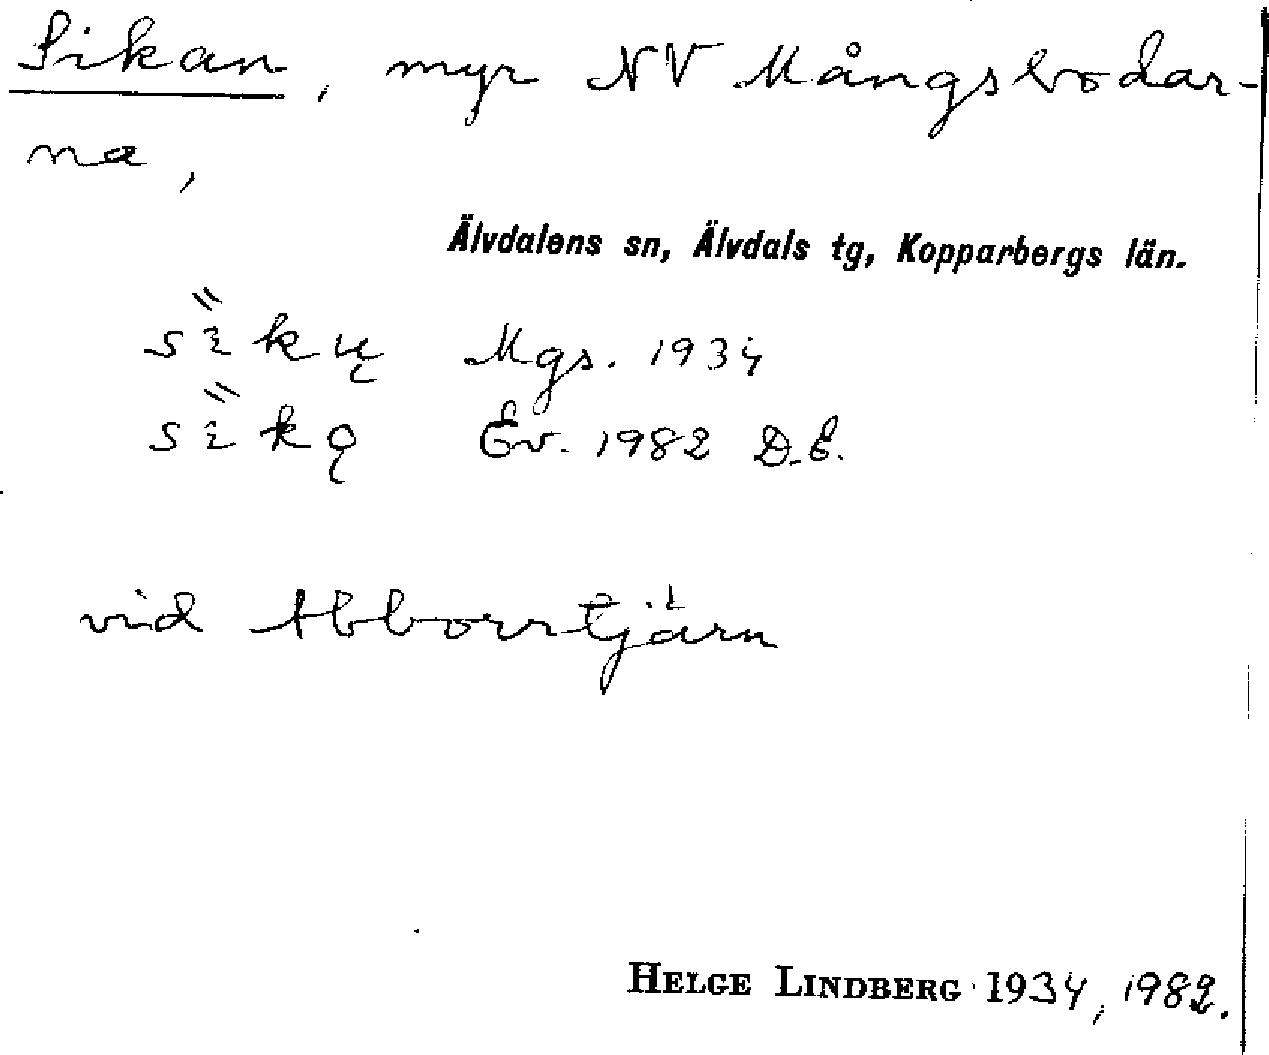 Sikan, myr NV Mångsbodar-
na,
Älvdalens sn, Älvdals tg, Kopparbergs län.
Mgs. 1934
Ev. 1982 D.E.
vid Abborrtjärn
HELGE LINDBERG 1934, 1982.